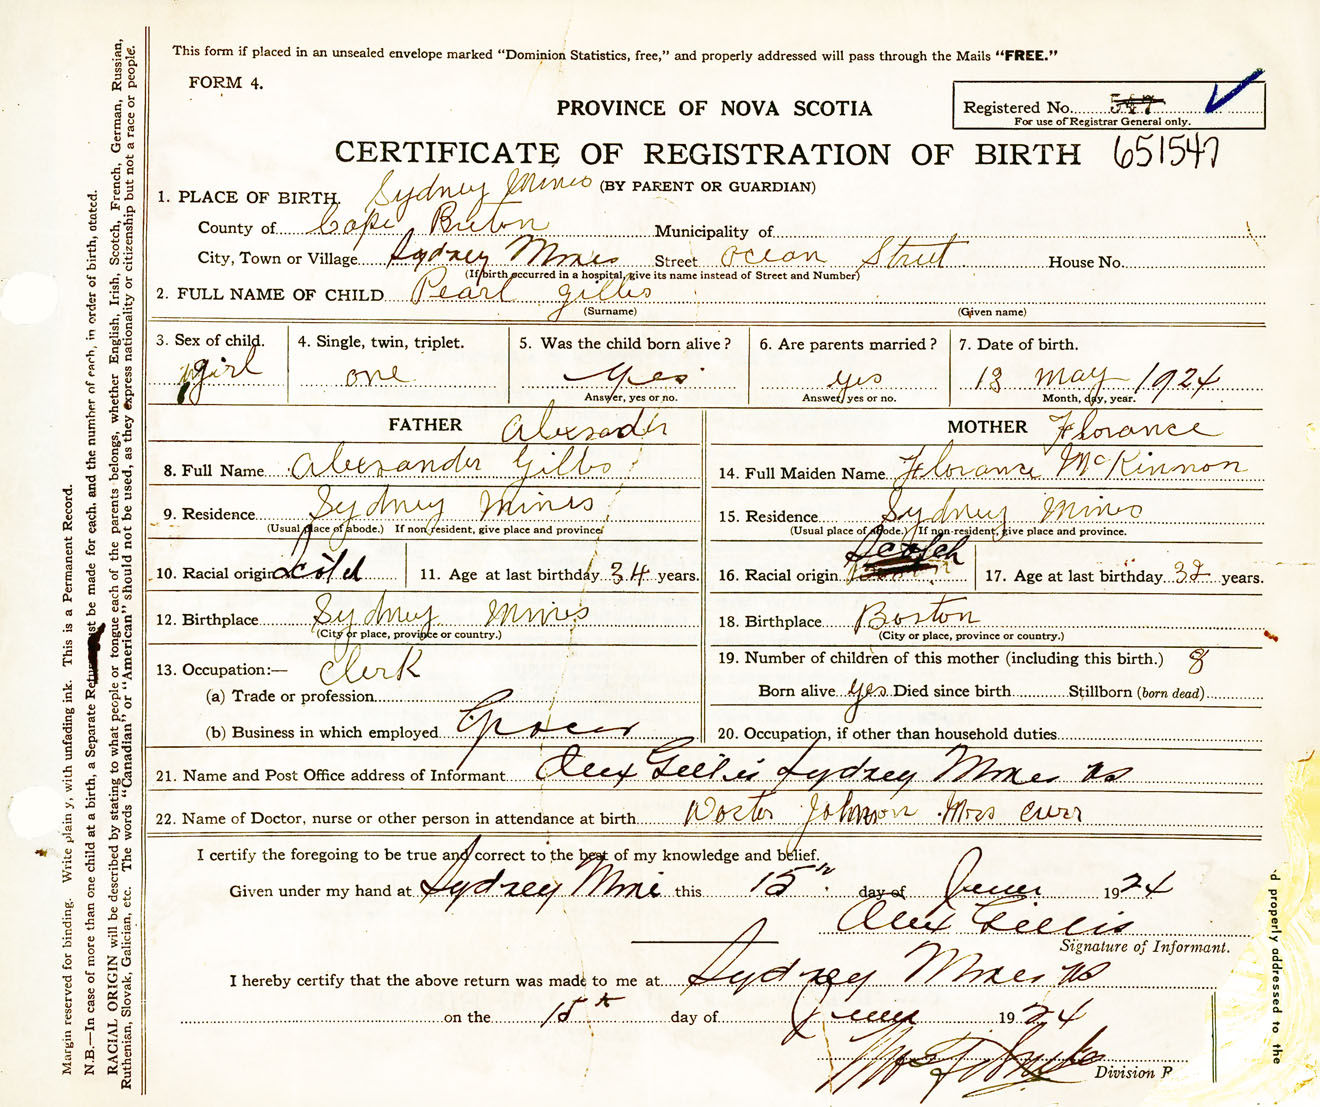 This form if placed in an unsealed envelope marked “Dominion Statistics, free,” and properly addressed will pass through the Mails “FREE.”
FORM 4.
PROVINCE OF NOVA SCOTIA
Registered No. 547
For use of Registrar General only.
CERTIFICATE OF REGISTRATION OF BIRTH 651547
(BY PARENT OR GUARDIAN)
1. PLACE OF BIRTH. Sydney Mines
County of Cape Breton Municipality of
City, Town or Village Sydney Mines Street Ocean Street House No.
(If birth occurred in a hospital, give its name instead of Street and Number)
2. FULL NAME OF CHILD Pearl Gillis
(Surname) (Given name)
3. Sex of child. 4. Single, twin, triplet. 5. Was the child born alive? 6. Are parents married? 7. Date of birth.
girl one yes yes 13 May 1924
Answer, yes or no. Answer, yes or no. Month, day, year.
FATHER Alexander MOTHER Florance
8. Full Name Alexander Gillis 14. Full Maiden Name Florance McKinnon
9. Residence Sydney Mines 15. Residence Sydney Mines
(Usual place of abode.) If non resident, give place and province. (Usual place of abode.) If non-resident, give place and province.
10. Racial origin Scotch 11. Age at last birthday 34 years. 16. Racial origin Scotch 17. Age at last birthday 32 years.
12. Birthplace Sydney Mines 18. Birthplace Boston
(City or place, province or country.) (City or place, province or country.)
13. Occupation:— Clerk 19. Number of children of this mother (including this birth.) 8
(a) Trade or profession Born alive yes Died since birth Stillborn (born dead)
(b) Business in which employed Grocer 20. Occupation, if other than household duties
21. Name and Post Office address of Informant Alex Gillis Sydney Mines NS
22. Name of Doctor, nurse or other person in attendance at birth Johnson Mrs
I certify the foregoing to be true and correct to the best of my knowledge and belief.
Given under my hand at Sydney Mines this 15th day of June 1924
Alex Gillis
Signature of Informant.
I hereby certify that the above return was made to me at Sydney Mines NS
on the 15th day of June 1924
Division R
Margin reserved for binding. Write plain y, with unfading ink. This is a Permanent Record.
N.B.—In case of more than one child at a birth, a Separate Return must be made for each, and the number of each, in order of birth, stated.
RACIAL ORIGIN will be described by stating to what people or tongue each of the parents belongs, whether English, Irish, Scotch, French, German, Russian,
Ruthenian, Slovak, Galician, etc. The words “Canadian” or “American” should not be used, as they express nationality or citizenship but not a race or people.
d properly addressed to the